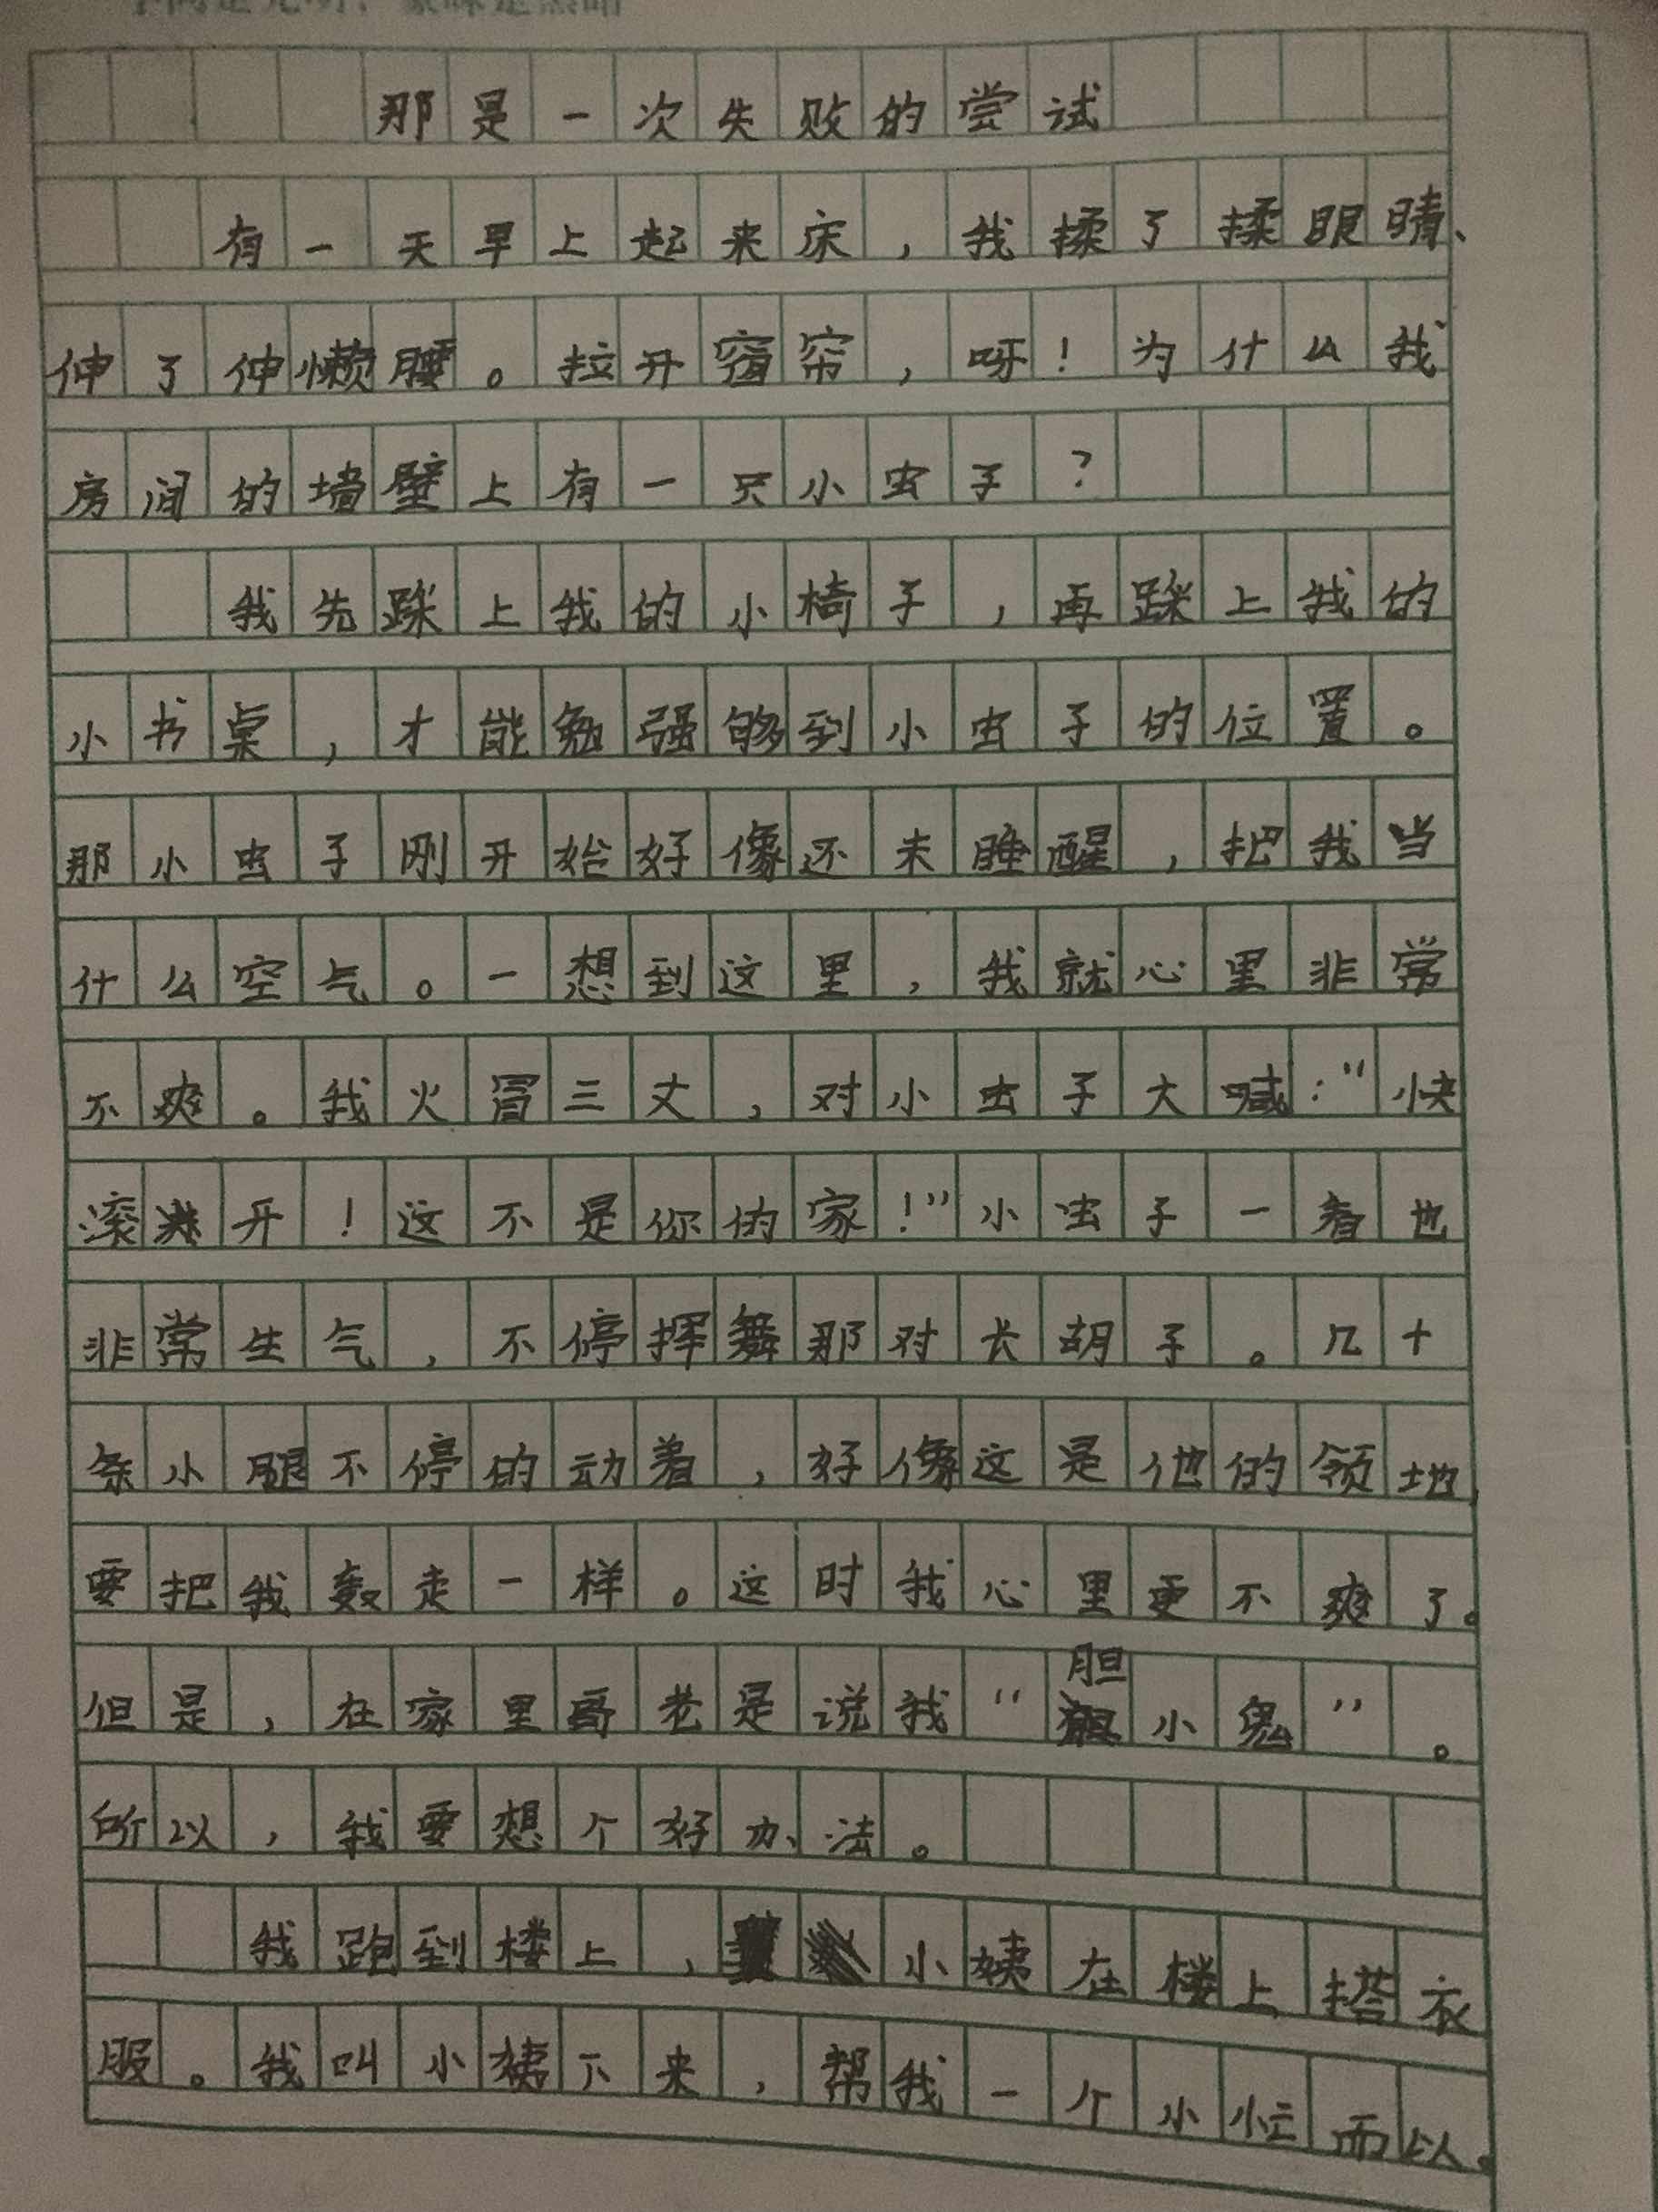 那是一次失败的尝试
有一天早上起来床，我揉了揉眼睛、
伸了伸懒腰。拉开窗帘，呀！为什么我
房间的墙壁上有一只小虫子？
我先踩上我的小椅子，再踩上我的
小书桌，才能勉强够到小虫子的位置。
那小虫子刚开始好像还未睡醒，把我当
什么空气。一想到这里，我就心里非常
不爽。我火冒三丈，对小虫子大喊：“快
滚开！这不是你的家！”小虫子一看也
非常生气，不停挥舞那对长胡子。几十
条小腿不停的动着，好像这是他的领地，
要把我轰走一样。这时我心里更不爽了。
但是，在家里哥老是说我“胆小鬼”。
所以，我要想个好办法。
我跑到楼上，小姨在楼上搭衣
服。我叫小姨下来，帮我一个小忙而以。